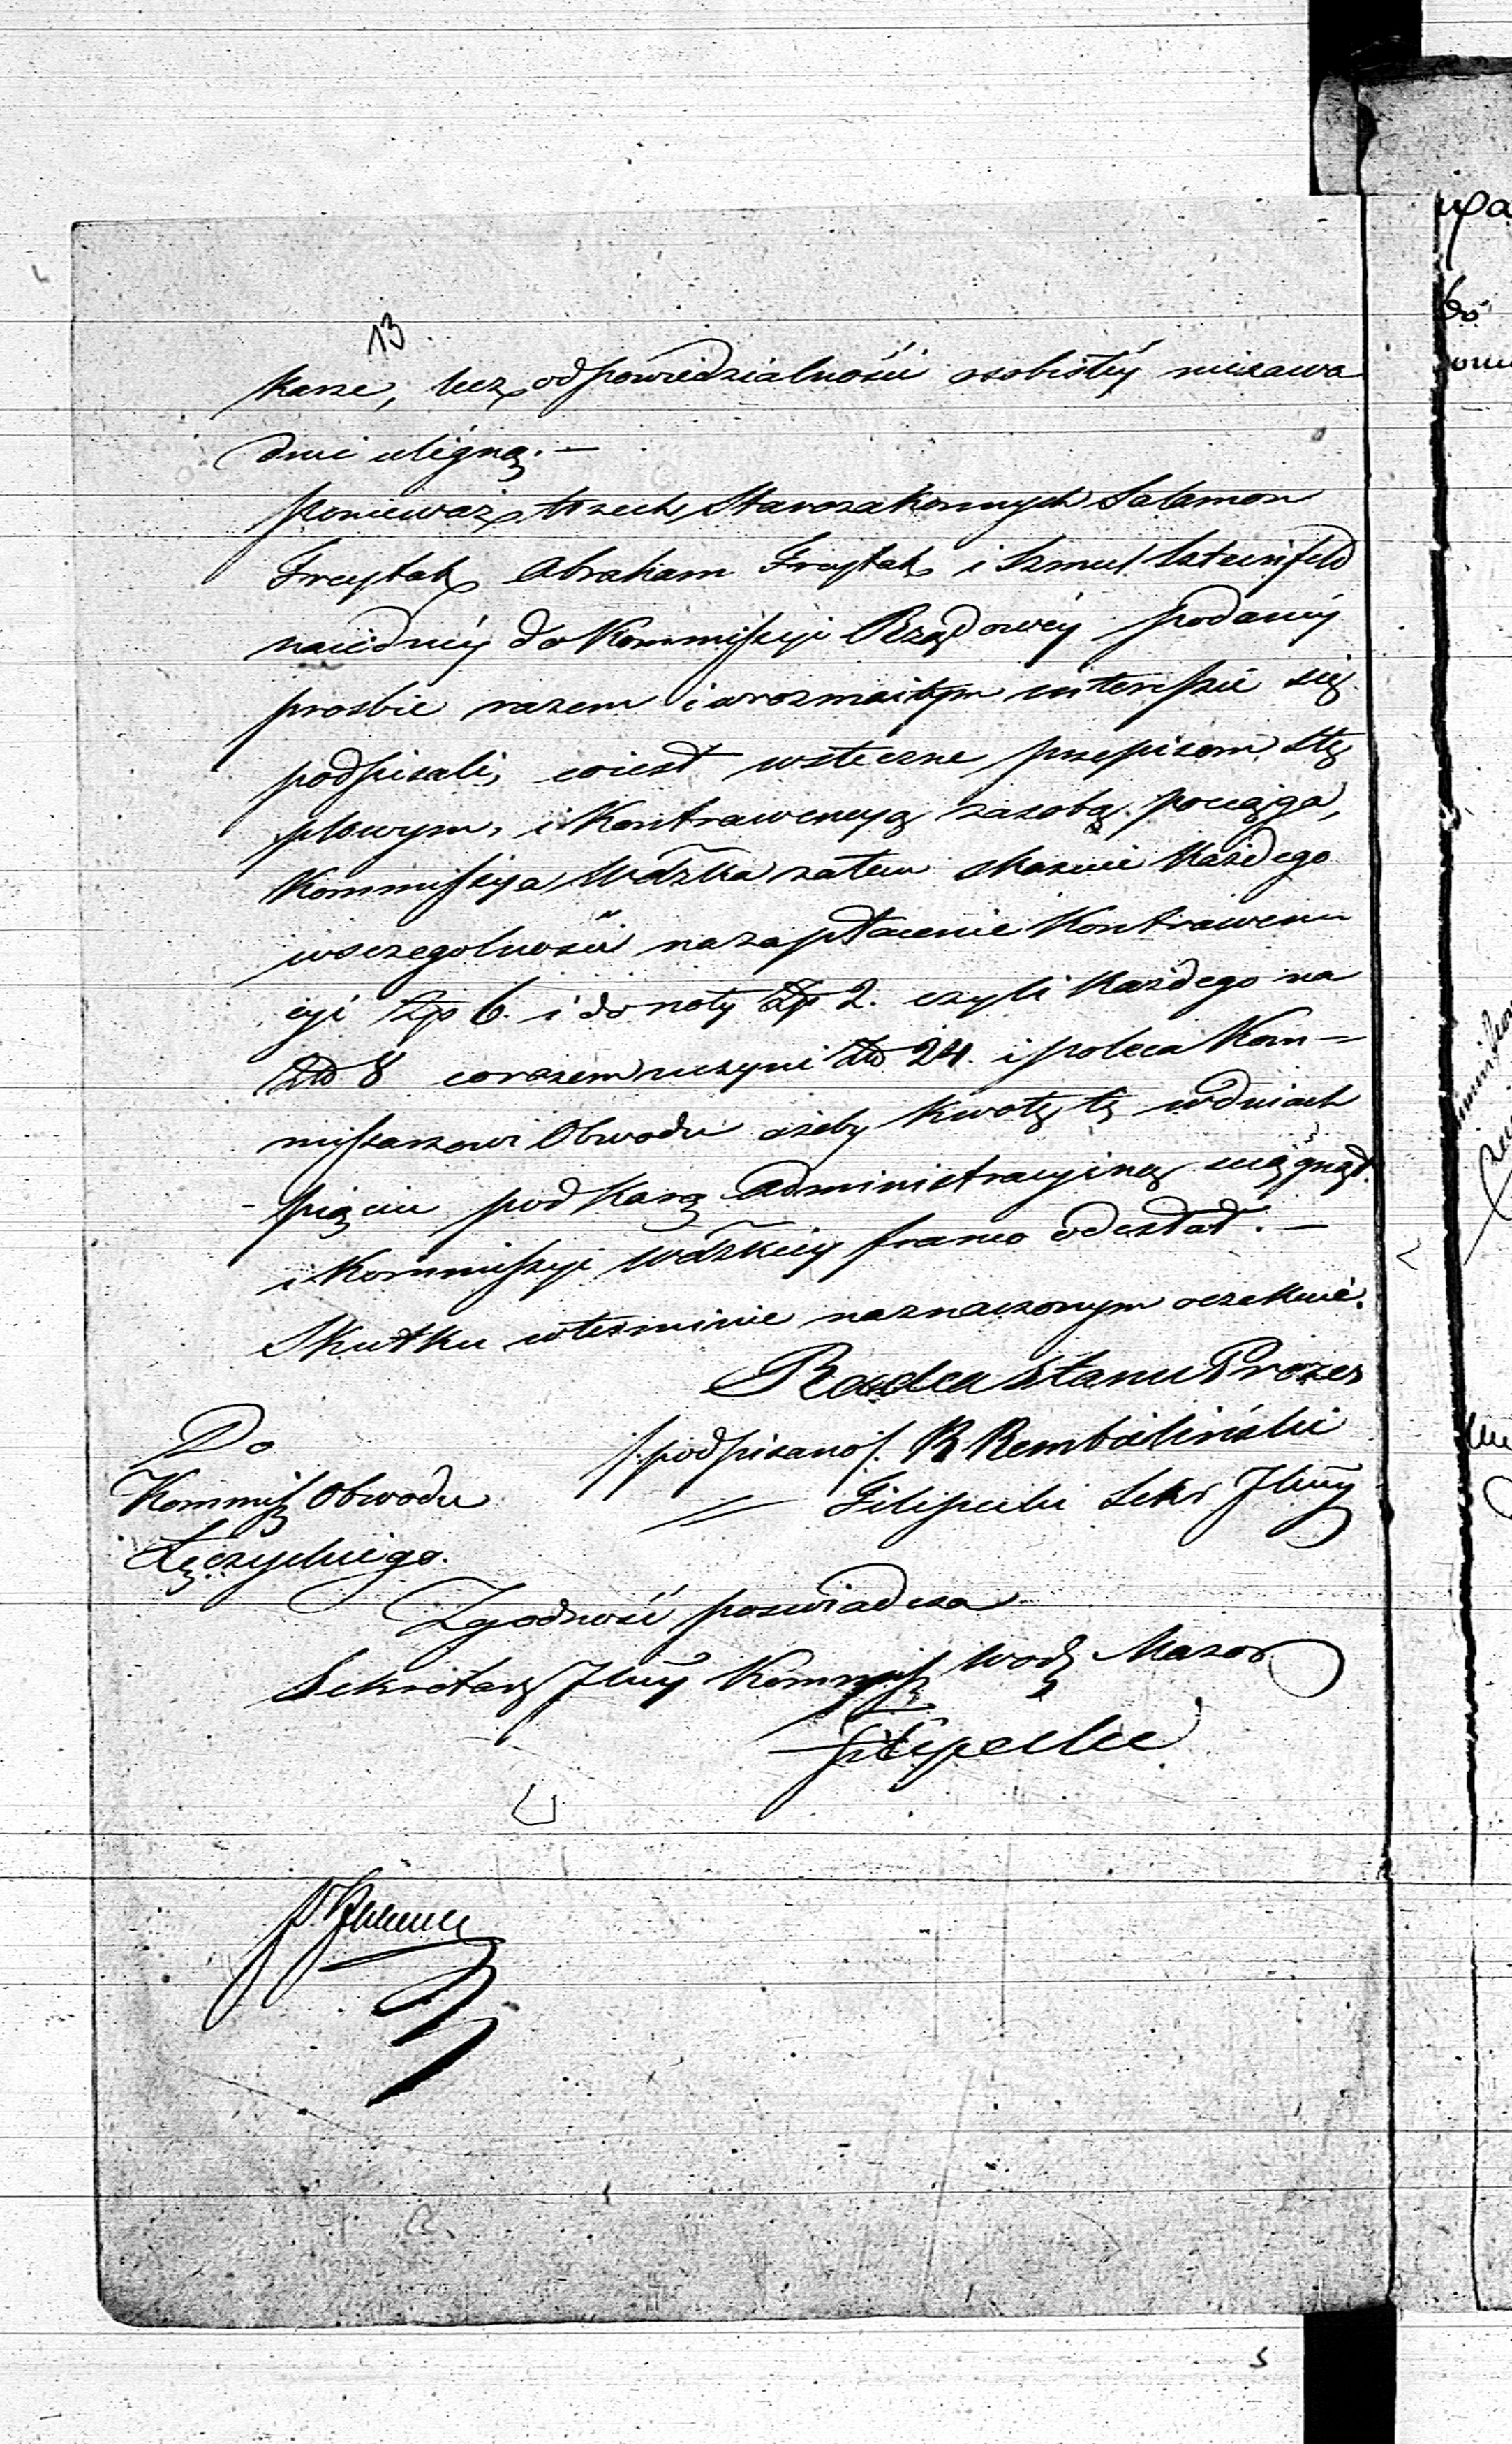 13.
karze, lecz odpowiedzialności osobistéy niezawo
dnie ulegną. —
Ponieważ trzech Starozakonnych Salamon
Freytak Abraham Freytak i Szmul Szteinfeld
naiednéy do Kommissyi Rządowéy podanéy
prosbie razem i w rozmaitym interessie się
podpisali, co iest wsteczne przepisom stę
plowym, i Kontrawencyą zasobą pociąga,
Kommissya Wdzka zatem skazuie każdego
wszczegolności na zapłacenie Kontrawen
cyi Złp 6. i do noty Złp 2. czyli każdego na
Złp 8 co razem uczyni Złp 24. i poleca Kom=
missarzowi Obwodu ażeby kwotę tę w dniach
pięciu pod karą administracyiną ściągnął.
i Kommissyi Wdzkiéy franco odesłał. —
Skutku w terminie naznaczonym oczekuie.
Radca Stanu Prezes
/:podpisano/: R Rembieliński
// Filipecki Sekr Jlny
Do
Kommiss Obwodu
Łęczyckiego.
Zgodność poswiadcza
Sekretarz Jlny Kommiss Wodz Mazow
Filipecki